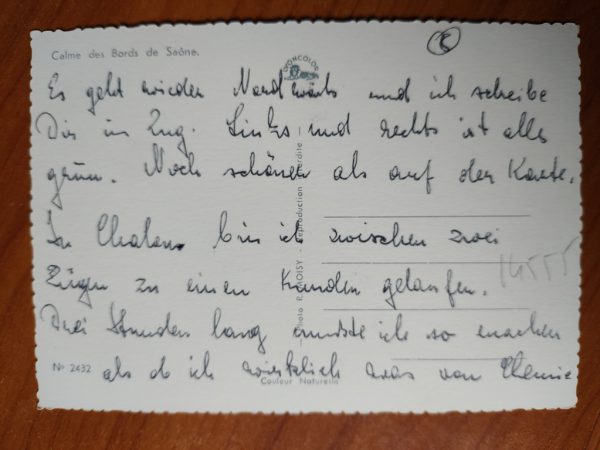 6
Calme des Bords de Saône.
IRISCOLOR
Es geht wieder Nordwärts und ich schreibe
Dir im Zug. Links und rechts ist alles
grün. Noch schöner als auf der Karte.
In Chalon bin ich zwischen zwei
Zügen zu einen Kunden gelaufen.
Drei Stunden lang musste ich so machen
als ob ich wirklich was von Chemie
14555
Photo R. LOISY - Reproduction interdite
Nº 2432
Couleur Naturelle